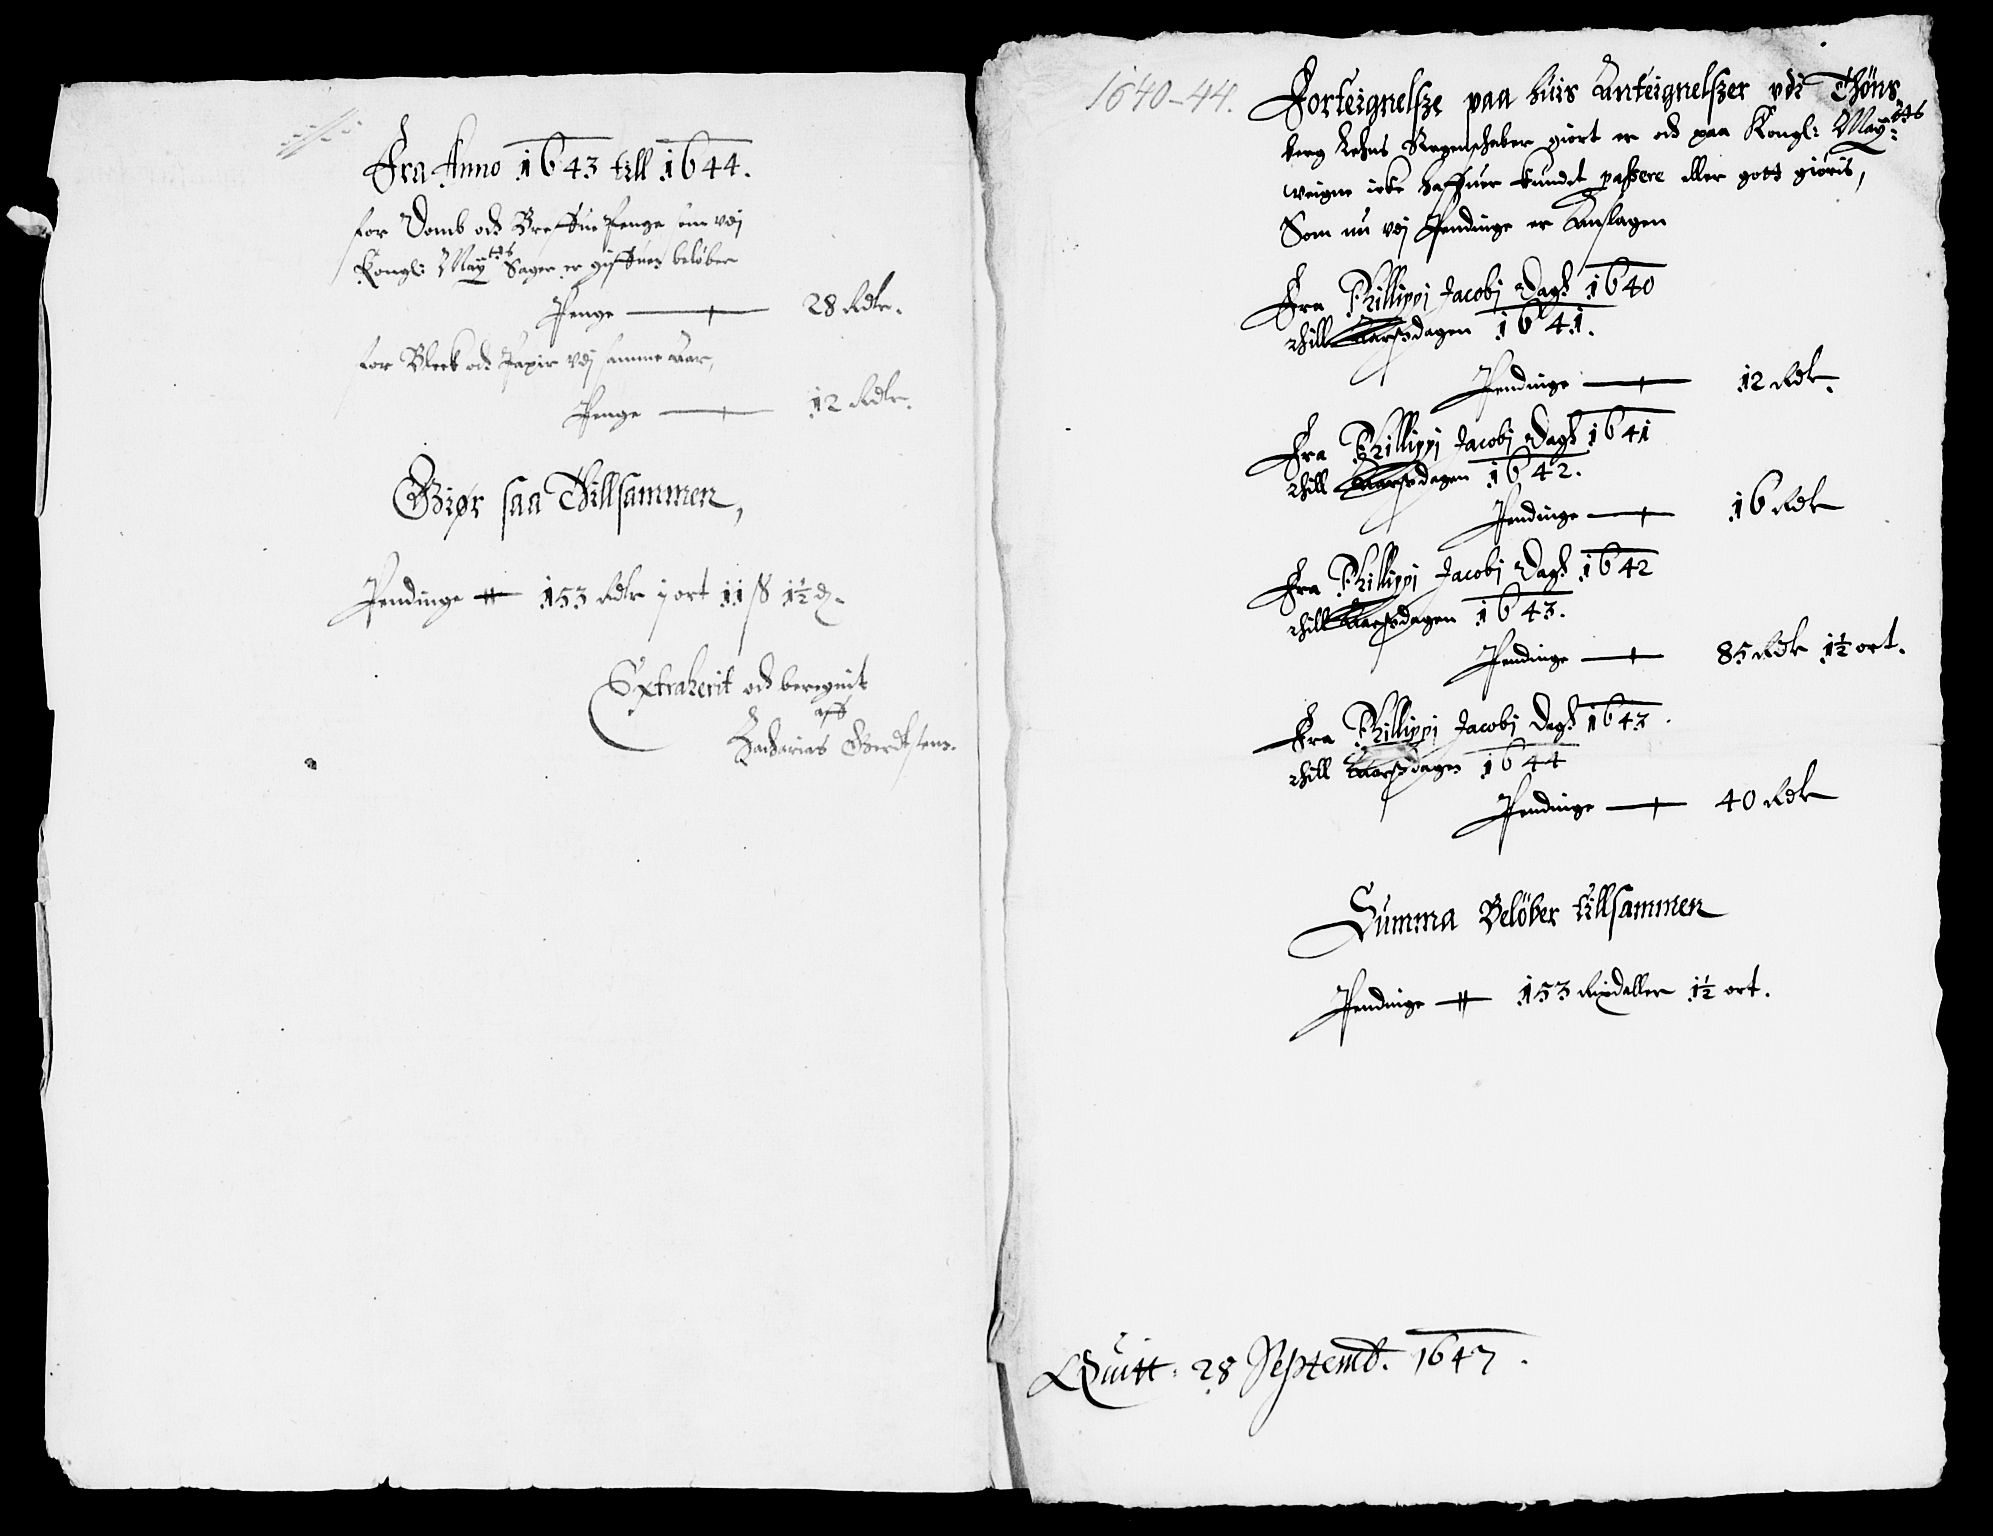 Fra Anno 1643 till 1644.
for Domb och Breffue Penge som vdj
Kongl: May:tts Sager er giffuen beløber
Penge 28 Rdlr.
for Bleck och Papir vdj samme Aar,
Penge 12 Rdlr.
Giør saa Thillsammen,
Pendinge 153 Rdlr j ort 11 ß 1½ d.
Extraherit och beregnit
aff
Zacharias Gierdtsenn.
1640-44.
Forteignelsze paa huis Anteignelszer vdi Thöns
berg Lehns Regenschaber giort er och paa Kongl: May:tts
weigne icke haffuer kundet passere eller gott giöris,
Som nu vdj Pendinge er Anslagen
Fra Phillippj Jacobj Dagh 1640
thill Aarsdagen 1641.
Pendinge 12 Rdlr.
Fra Phillippj Jacobj Dagh 1641
thill Aarsdagen 1642.
Pendinge 16 Rdlr
Fra Phillippj Jacobj Dagh 1642
thill Aarsdagen 1643.
Pendinge 85 Rdlr 1½ ort.
Fra Phillippj Jacobj Dagh 1643.
thill Aarsdagen 1644
Pendinge 40 Rdlr
Summa Belöber tillsammen
Pendinge 153 Rixdaller 1½ ort.
Quitt: 28 Septemb. 1647.